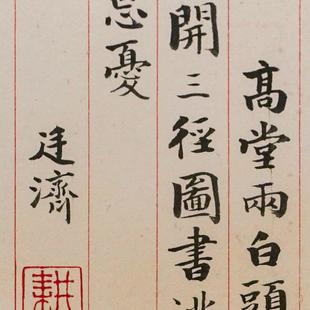 高堂兩白頭
開三徑圖書
忘憂
廷濟
耕